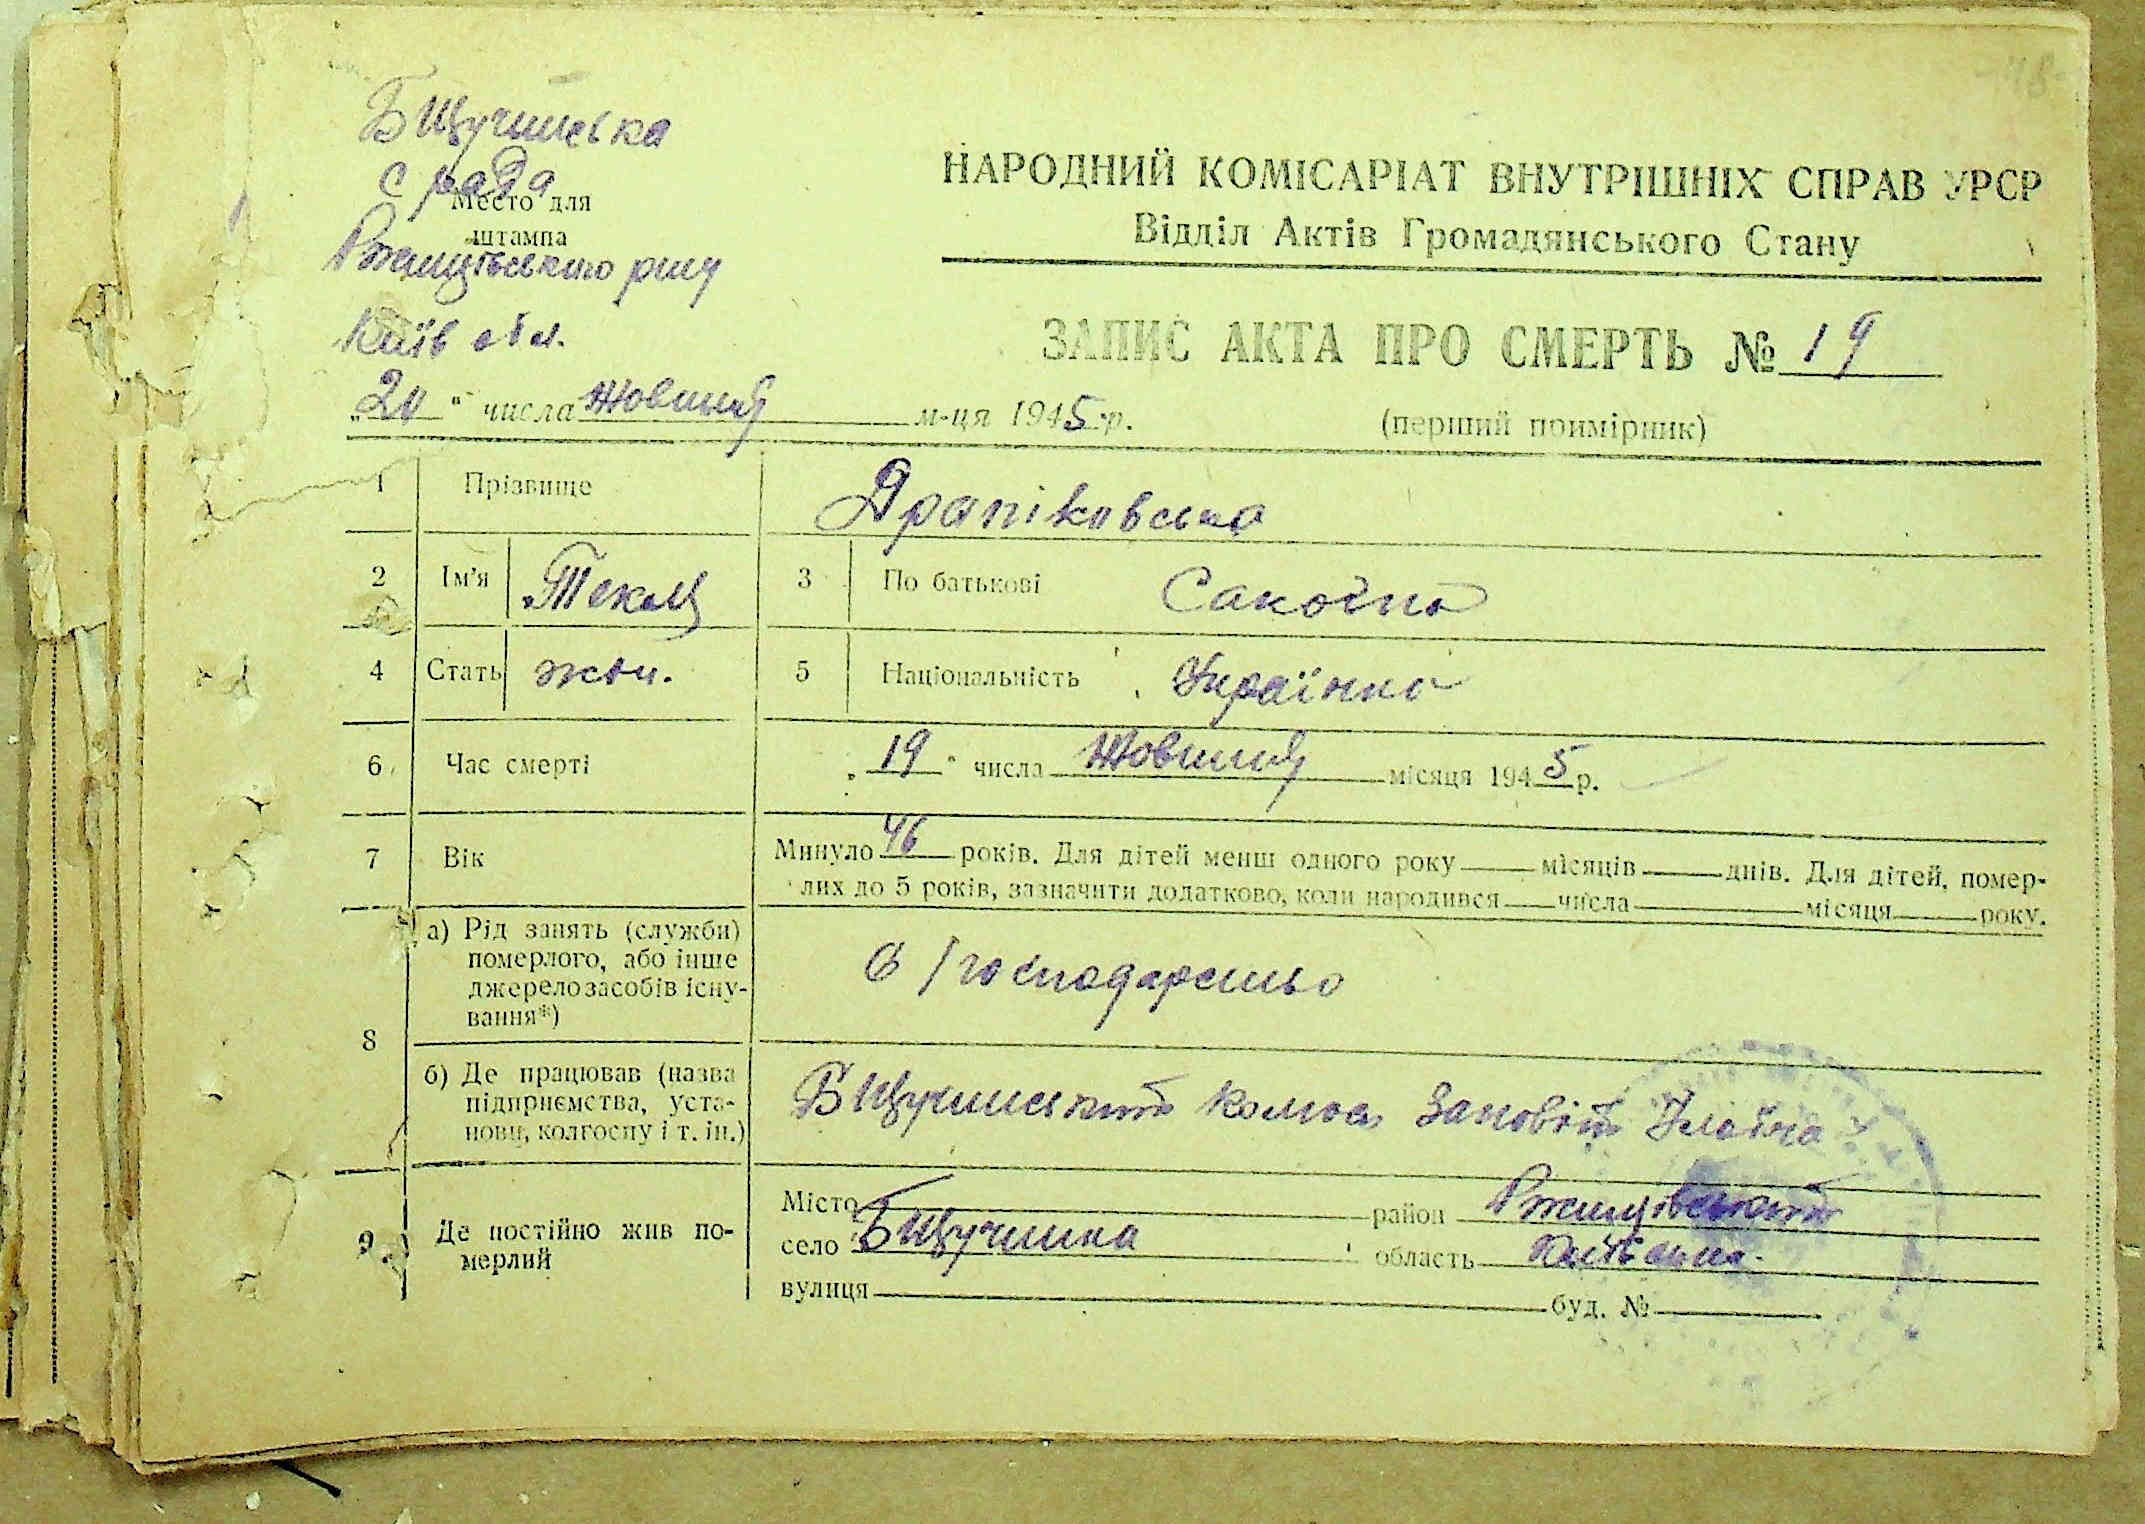 Б Щучинська
с рада
Место для
штампа
Ржищівського р-ну
Київ обл.
НАРОДНИЙ КОМІСАРІАТ ВНУТРІШНІХ СПРАВ УРСР
Відділ Актів Громадянського Стану
ЗАПИС АКТА ПРО СМЕРТЬ № 19
„20“ числа Жовтня м-ця 1945 р.
(перший примірник)
1 Прізвище Драпіковська
2 Ім'я Текля 3 По батькові
4 Стать жін. 5 Національність Українка
6 Час смерті „19“ числа Жовтня місяця 1945 р.
7 Вік Минуло 46 років. Для дітей менш одного року місяців днів. Для дітей, помер-
лих до 5 років, зазначити додатково, коли народився числа місяця року.
8 а) Рід занять (служби)
померлого, або інше
джерело засобів існу-
вання*)
С/господарство
б) Де працював (назва
підприємства, уста-
нови, колгоспу і т. ін.)
Б Щучинський колгосп Заповіт Ілліча
9 Де постійно жив по-
мерлий
Місто район Ржищівський
село Б Щучинка область Київська
вулиця буд. №